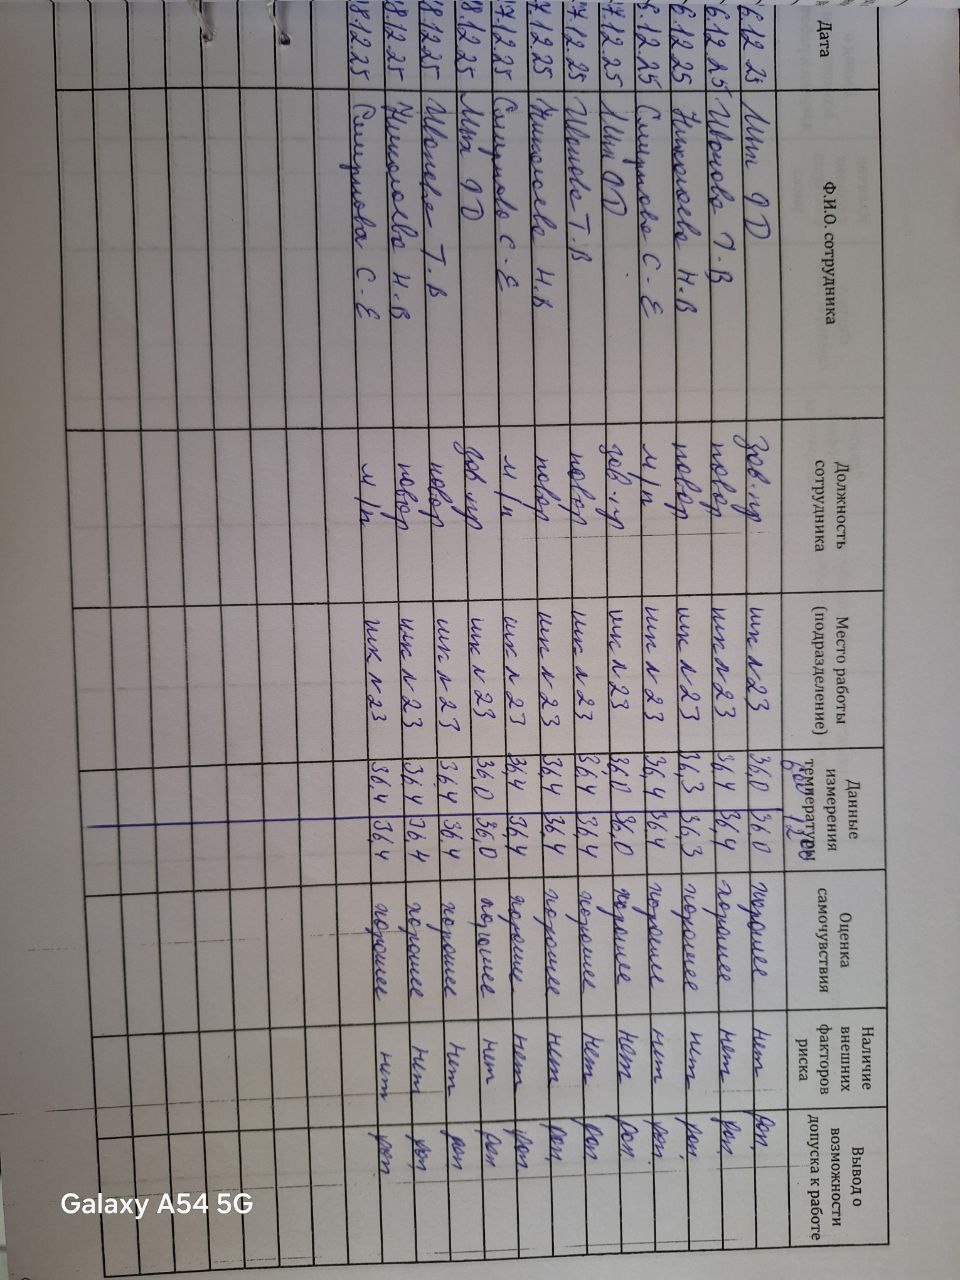 Дата Ф.И.О. сотрудника Должность сотрудника Место работы (подразделение) Данные измерения температуры Оценка самочувствия Наличие внешних факторов риска Вывод о возможности допуска к работе
6.12.25 зав.пр шк n 23 36,0 36,0 хорошее нет
6.12.25 Иванова Т.В повар шк n 23 36,4 36,4 хорошее нет
6.12.25 Николаева Н.В повар шк n 23 36,3 36,3 хорошее нет
6.12.25 Смирнова С.Е м/п шк n 23 36,4 36,4 хорошее нет
7.12.25 зав.пр шк n 23 36,0 36,0 хорошее нет
7.12.25 Иванова Т.В повар шк n 23 36,4 36,4 хорошее нет
7.12.25 Николаева Н.В повар шк n 23 36,4 36,4 хорошее нет
7.12.25 Смирнова С.Е м/п шк n 23 36,4 36,4 хорошее нет
8.12.25 зав.пр шк n 23 36,0 36,0 хорошее нет
8.12.25 Иванова Т.В повар шк n 23 36,4 36,4 хорошее нет
8.12.25 Николаева Н.В повар шк n 23 36,4 36,4 хорошее нет
8.12.25 Смирнова С.Е м/п шк n 23 36,4 36,4 хорошее нет
Galaxy A54 5G